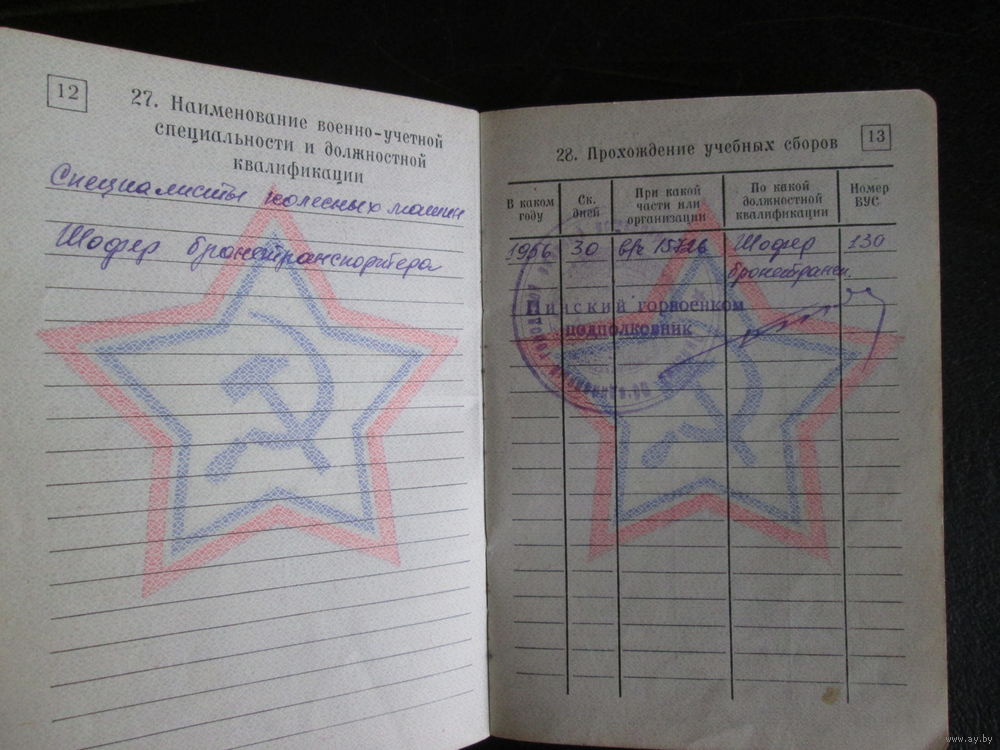 12
27. Наименование военно-учетной
специальности и должностной
квалификации
Специалисты колесных машин
Шофер бронетранспортера
28. Прохождение учебных сборов
13
В каком году
Ск. дней
При какой части или организации
По какой должностной квалификации
Номер ВУС
1956 30 в/ч Шофер 130
бронетрансп.
Пинский горвоенком
подполковник
www.ay.by